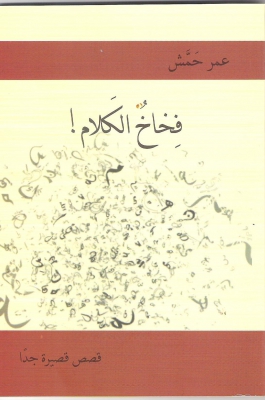 عمر حَمَّش
فِخاخُ الكَلام !
قصص قصيرة جدًا